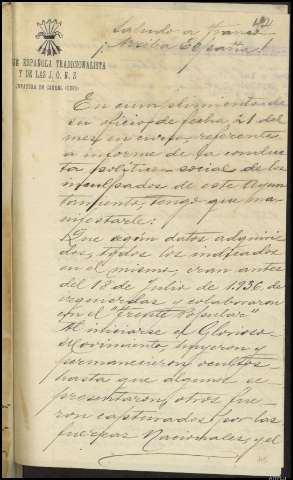 404
Saludo a Franco
Arriba España!
GE ESPAÑOLA TRADICIONALISTA
Y DE LAS J. O. N. S
JEFATURA DE
En cumplimiento de
su oficio, de fecha, 21 del
mes en curso, referente
a informe de la conduc
ta politica-social de los
inculpados de este Ayun
tamiento, tengo que ma
nifestarle:
Que según datos adquiri
dos, todos los indicados
en el mismo, eran antes
del 18 de Julio de 1.936, de
izquierdas y colaboraron
con el "Frente Popular"
Al iniciarse el Glorioso
Movimiento, huyeron y
permanecieron ocultos
hasta que algunos se
presentaron, otros fue
ron capturados por las
fuerzas Nacionales, y el